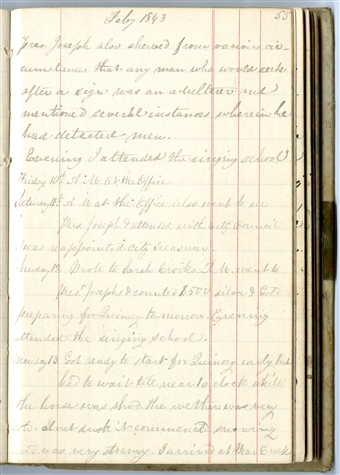 Feby 1843
55
Pres. Joseph also shewed from various cir-
cumstances that any man who would seek
after a sign was an adulterer and
mentioned several instances wherein he
had detected men.
Evening I attended the singing school
Friday 10th A.M. at the Office
Saturday 11 A.M at the Office also went to see
Pres. Joseph & attended with city Council
was reappointed City Treasurer
Sunday 12 Wrote to Sarah Crooks. P.M. went to
Pres. Josephs & counted $500 silver & Gold
preparing for Quincy to morrow. Evening
attended the singing school.
Monday 13 Got ready to start for Quincy early but
had to wait till near 10 clock while
the horse was shod. the weather was very
about dusk it commenced snowing
was very stormy. I arrived at Bear Creek